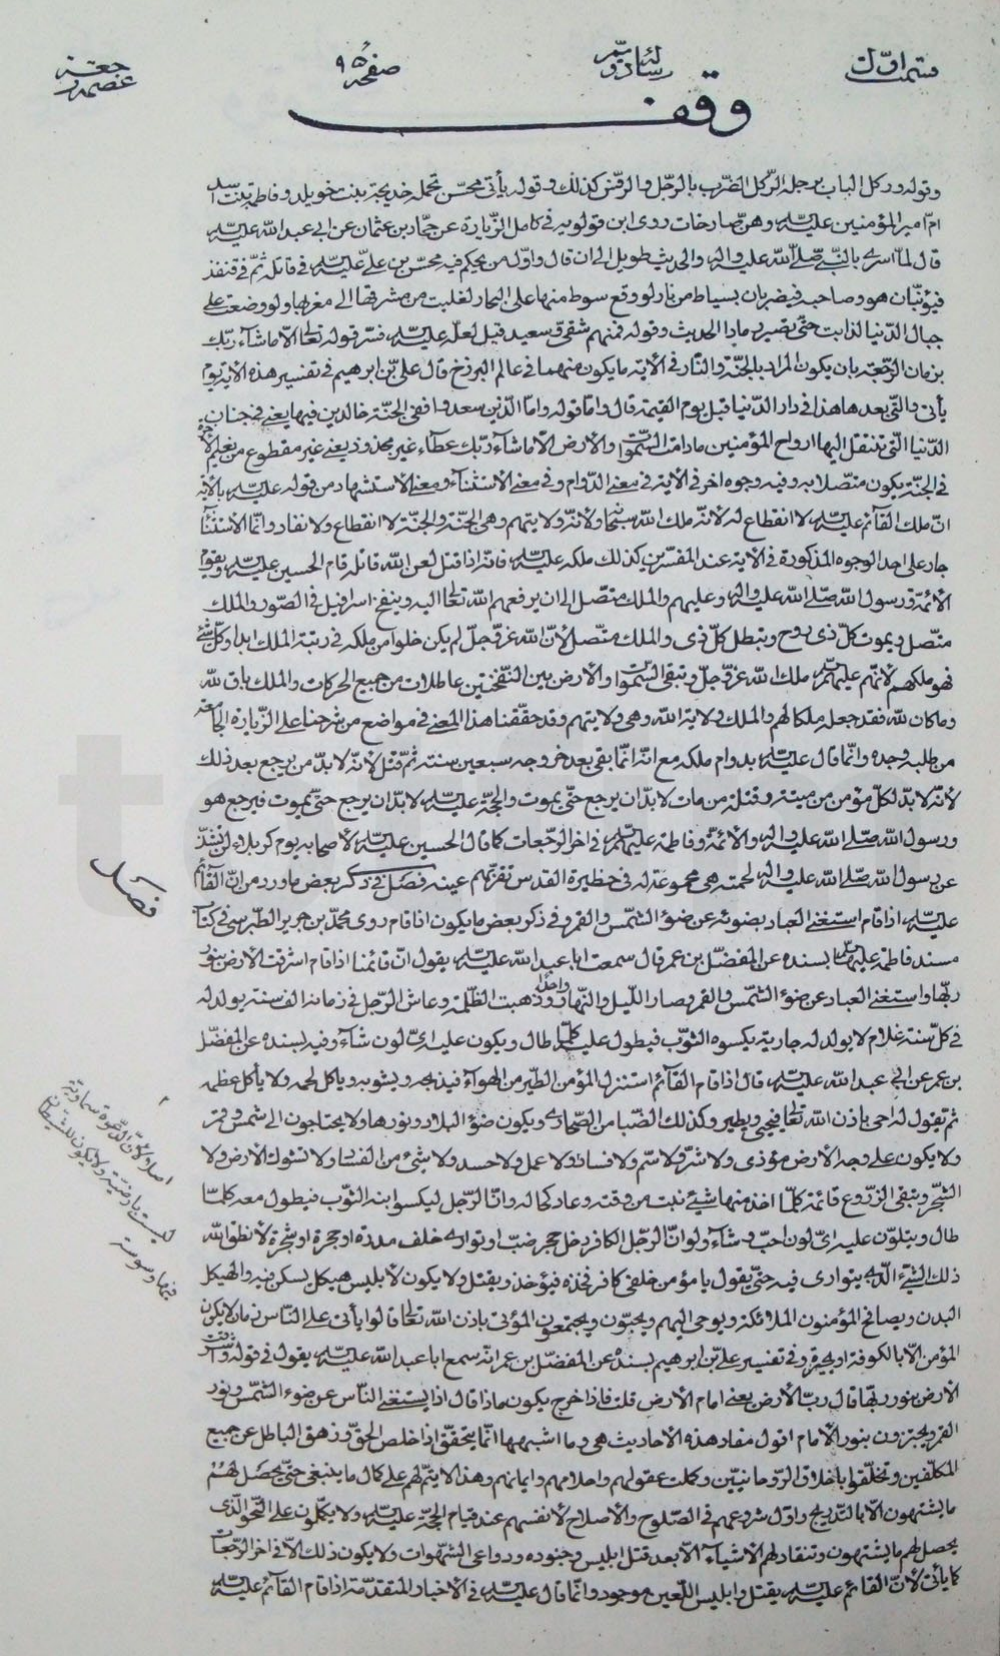 قسمت اول
رسالة دويم
صفحة ٩٥
عصمة رجعة
وقف
وقوله وركل الباب برجله الركل الضرب بالرجل والرفس كذلك وقوله يأتي محسن تحمله خديجة بنت خويلد وفاطمة بنت اسد
ام امير المؤمنين عليه السلام وهن صارخات روى ابن قولويه في كامل الزيارة عن حماد بن عثمان عن ابي عبد الله عليه السلام
قال لما اسري بالنبي صلى الله عليه واله والحديث طويل الى ان قال واول من يحكم فيه محسن بن علي عليه السلام في قاتله ثم في قنفذ
فيؤتيان هو وصاحبه فيضربان بسياط من نار لو وقع سوط منها على البحار لغلت من مشرقها الى مغربها ولو وضعت على
جبال الدنيا لذابت حتى تصير رمادا الحديث وقوله فمنهم شقي وسعيد قيل لعله عليه السلام فسر قوله تعالى الا ما شاء ربك
بزمان الرجعة بان يكون المراد بالجنة والنار في الاية ما يكون منهما في عالم البرزخ قال علي بن ابرهيم في تفسير هذه الاية يوم
يأتي والتي بعدها هذا في دار الدنيا قبل يوم القيمة قال واما قوله واما الذين سعدوا ففي الجنة خالدين فيها يعني في جنان
الدنيا التي تنتقل اليها ارواح المؤمنين ما دامت السموات والارض الا ما شاء ربك عطاء غير مجذوذ يعني غير مقطوع من نعيم الاخرة
في الجنة يكون متصلا به وفيه وجوه اخر في الاية في معنى الدوام وفي معنى الاستثناء ومعنى الاستشهاد من قوله عليه السلام بالاية
ان ملك القائم عليه السلام لا انقطاع له لانه ملك الله سبحانه ولانه ولايتهم وهي الجنة والجنة لا انقطاع ولا نفاد وانما الاستثناء
جار على احد الوجوه المذكورة في الاية عند المفسرين كذلك ملكه عليه السلام فانه اذا قتل لعن الله قاتله قام الحسين عليه السلام ويقوم
الائمة ورسول الله صلى الله عليه واله وعليهم والملك متصل الى ان يرفعهم الله تعالى اليه وينفخ اسرافيل في الصور والملك
متصل ويموت كل ذي روح وتبطل كل ذي والملك متصل لأن الله عز وجل لم يكن خلوا من ملكه في رتبة الملك ابدا وكل شئ
فهو ملكهم لانهم عليهم السلام ملك الله عز وجل وتبقى السموات والارض بين النفختين عاطلات من جميع الحركات والملك باق لله
وما كان لله فقد جعله ملكا لهم والملك ولاية الله وهي ولايتهم وقد حققنا هذا المعنى في مواضع من شرحنا على الزيارة الجامعة
من طلبه وجده وانما قال عليه السلام بدوام ملكه مع انه انما بقي بعد خروجه سبعين سنة ثم قتل لانه لا بد من يرجع بعد ذلك
لانه لا بد لكل مؤمن من ميتة وقتلة من مات لا بد ان يرجع حتى يموت والحجة عليه السلام لا بد ان يرجع حتى يموت فيرجع هو
ورسول الله صلى الله عليه واله والائمة وفاطمة عليهم السلام في اخر الرجعات كما قال الحسين عليه السلام لاصحابه يوم كربلا ولن تشذ
عن رسول الله صلى الله عليه واله لحمته هي مجموعة له في حظيرة القدس تقر بهم عينه فصل في ذكر بعض ما ورد من ان القائم
عليه السلام اذا قام استغنى العباد بضوئه عن ضوء الشمس والقمر وفي ذكر بعض ما يكون اذا قام روى محمد بن جرير الطبرسي في كتاب
مسند فاطمة عليها السلام بسنده عن المفضل بن عمر قال سمعت ابا عبد الله عليه السلام يقول ان قائمنا اذا قام اشرقت الارض بنور
ربها واستغنى العباد عن ضوء الشمس والقمر وصار الليل والنهار واحدا وذهبت الظلمة وعاش الرجل في زمانه الف سنة يولد له
في كل سنة غلام لا يولد له جارية يكسوه الثوب فيطول عليه كلما طال ويكون عليه اي لون شاء وفيه بسنده عن المفضل
بن عمر عن ابي عبد الله عليه السلام قال اذا قام القائم استنزل المؤمن الطير من الهواء فيذبحه ويشويه وياكل لحمه ولا يأكل عظمه
ثم تقول له احي باذن الله تعالى فيحيى ويطير وكذلك الضبا من الصحاري ويكون ضوء البلاد ونورها ولا يحتاجون الى شمس وقمر
ولا يكون على وجه الارض مؤذي ولا شر ولا سم ولا فساد ولا عمل ولا حسد ولا شئ من الفساد ولا تشوك الارض ولا
الشجر وتبقى الزروع قائمة كلما اخذ منها شئ نبت من وقته وعاد كحاله وان الرجل ليكسو ابنه الثوب فيطول معه كلما
طال ويتلون عليه اي لون احب وشاء ولو ان الرجل الكافر دخل حجر ضب او توارى خلف مدرة او حجرة او شجرة لأنطق الله
ذلك الشئ الذي يتوارى فيه حتى يقول يا مؤمن خلفي كافر فخذه فيؤخذ ويقتل ولا يكون لأبليس هيكل يسكن فيه والهيكل
البدن ويصافح المؤمنون الملائكة ويوحى اليهم ويحيون ويجتمعون الموتى باذن الله تعالى قالوا يأتي على الناس زمان لا يكون
المؤمن الا بالكوفة او يحن اليها وفي تفسير علي بن ابرهيم بسنده عن المفضل بن عمر انه سمع ابا عبد الله عليه السلام يقول في قوله واشرقت
الارض بنور ربها قال رب الارض يعني امام الارض قلت فاذا خرج يكون ماذا قال اذا يستغني الناس عن ضوء الشمس ونور
القمر ويجتزون بنور الامام اقول مفاد هذه الاحاديث هي وما اشبهها انما يتحقق اذا خلص الحق وزهق الباطل عن جميع
المكلفين وتخلقوا باخلاق الروحانيين وكملت عقولهم واحلامهم وايمانهم وهذا لا يتم لهم على كمال ما ينبغي حتى يحصل لهم
ما يشتهون الا بالتدريج واول شروعهم في الصلوح والاصلاح لانفسهم عند قيام الحجة عليه السلام ولا يكملون على النحو الذي
يحصل لهم ما يشتهون وتنقاد لهم الاشياء الا بعد قتل ابليس وجنوده ودواعي الشهوات ولا يكون ذلك الا في اخر الرجعات
كما يأتي لأن القائم عليه السلام يقتل وابليس اللعين موجود وانما قال عليه السلام في الاخبار المتقدمة اذا قام القائم عليه السلام
فصل
اصلا ولأن الدعوة سماوية
ليست بارضية ولا يكون للشيطان
فيها وسوسة